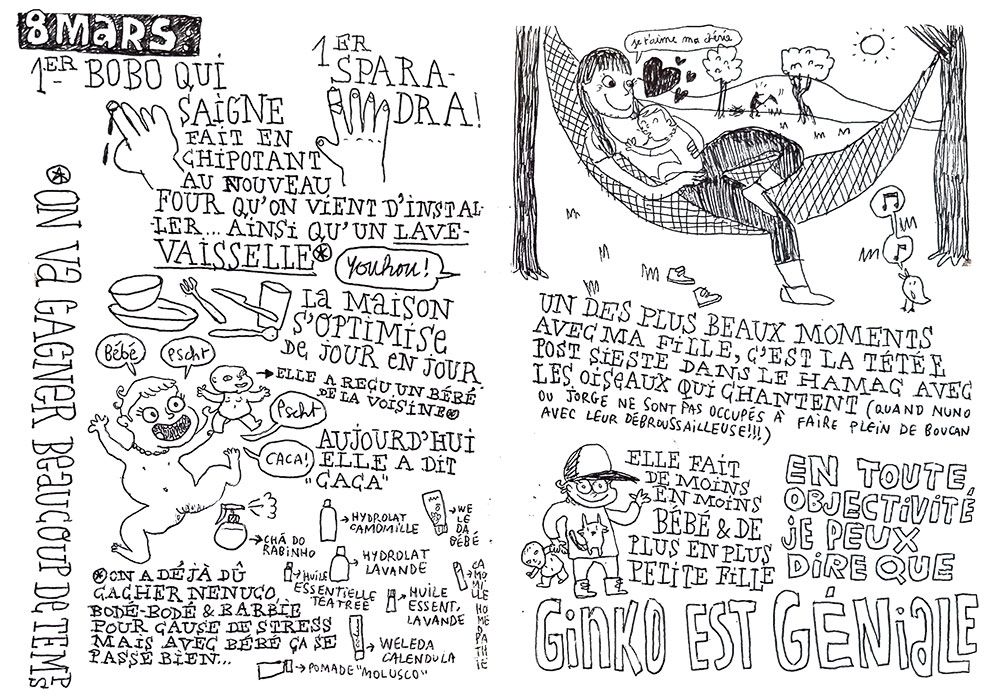 8 MARS.
1ER BOBO QUI
SAIGNE
FAIT EN
CHIPOTANT
AU NOUVEAU
FOUR QU'ON VIENT D'INSTAL-
LER... AINSI QU'UN LAVE-
VAISSELLE*
1ER
SPARA-
DRA!
Youhou!
*ON VA GAGNER BEAUCOUP DE TEMPS
LA MAISON
S'OPTIMISE
DE JOUR EN JOUR
Bébé
Pscht
→ELLE A REÇU UN BÉBÉ
DE LA VOISINE*
Pscht
CACA!
AUJOURD'HUI
ELLE A DIT
"CACA"
→CHÁ DO
RABINHO
→HYDROLAT
CAMOMILLE
→WE
LE
DA
BÉBÉ
→HYDROLAT
LAVANDE
→HUILE
ESSENTIELLE
TEATREE
→HUILE
ESSENT.
LAVANDE
CA
MO
MIL
LE
HO
MÉ
O
PA
THIE
→WELEDA
CALENDULA
→POMADE "MOLUSCO"
*ON A DÉJÀ DÛ
CACHER NENUCO,
BODÉ-BODÉ & BARBIE
POUR CAUSE DE STRESS
MAIS AVEC BÉBÉ ÇA SE
PASSE BIEN...
je t'aime ma chérie
UN DES PLUS BEAUX MOMENTS
AVEC MA FILLE, C'EST LA TÉTÉE
POST SIESTE DANS LE HAMAC AVEC
LES OISEAUX QUI CHANTENT (QUAND NUNO
OU JORGE NE SONT PAS OCCUPÉS À FAIRE PLEIN DE BOUCAN
AVEC LEUR DÉBROUSSAILLEUSE!!!)
ELLE FAIT
DE MOINS
EN MOINS
BÉBÉ & DE
PLUS EN PLUS
PETITE FILLE
EN TOUTE
OBJECTIVITÉ
JE PEUX
DIRE QUE
GINKO EST GÉNIALE